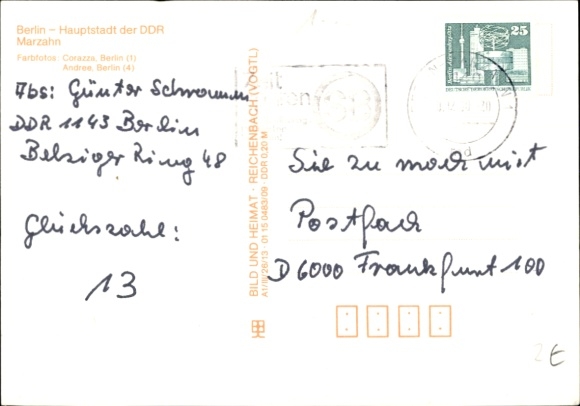 Berlin – Hauptstadt der DDR
Marzahn
Farbfotos: Corazza, Berlin (1)
Andrea, Berlin (4)
Abs: Günter Schramm
DDR 1143 Berlin
Belziger Ring 48
Glückszahl:
13
BILD UND HEIMAT · REICHENBACH (VOGTL)
A1/III/26/13 · 01 15 0483/09 · DDR 0,20 M
25
Sie zu mach mist
Postfach
D 6000 Frankfurt 100
2€